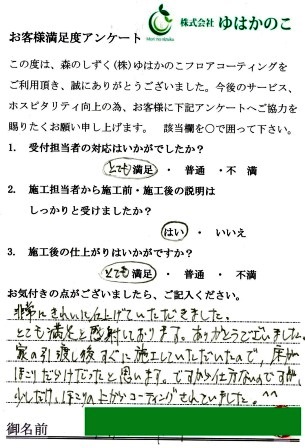 Mori no shizuku
株式会社 ゆはかのこ
お客様満足度アンケート
この度は、森のしずく(株)ゆはかのこフロアコーティングを
ご利用頂き、誠にありがとうございました。今後のサービス、
ホスピタリティ向上の為、お客様に下記アンケートへご協力を
賜りたくお願い申し上げます。 該当欄を〇で囲って下さい。
1. 受付担当者の対応はいかがでしたか?
とても満足 ・ 普通 ・不 満
2. 施工担当者から施工前・施工後の説明は
しっかりと受けましたか?
はい ・ いいえ
3. 施工後の仕上がりはいかがですか?
とても満足 ・ 普通 ・ 不 満
お気付きの点がございましたら、ご記入ください。
非常にきれいに仕上げていただきました。
とても満足と感謝しております。ありがとうございました。
家の引渡し後すぐに施工していただいたので、床が
ほこりだらけだったと思います。ですから仕方ないのですが
少しだけ、ほこりの上からコーティングされていました。^^
御名前